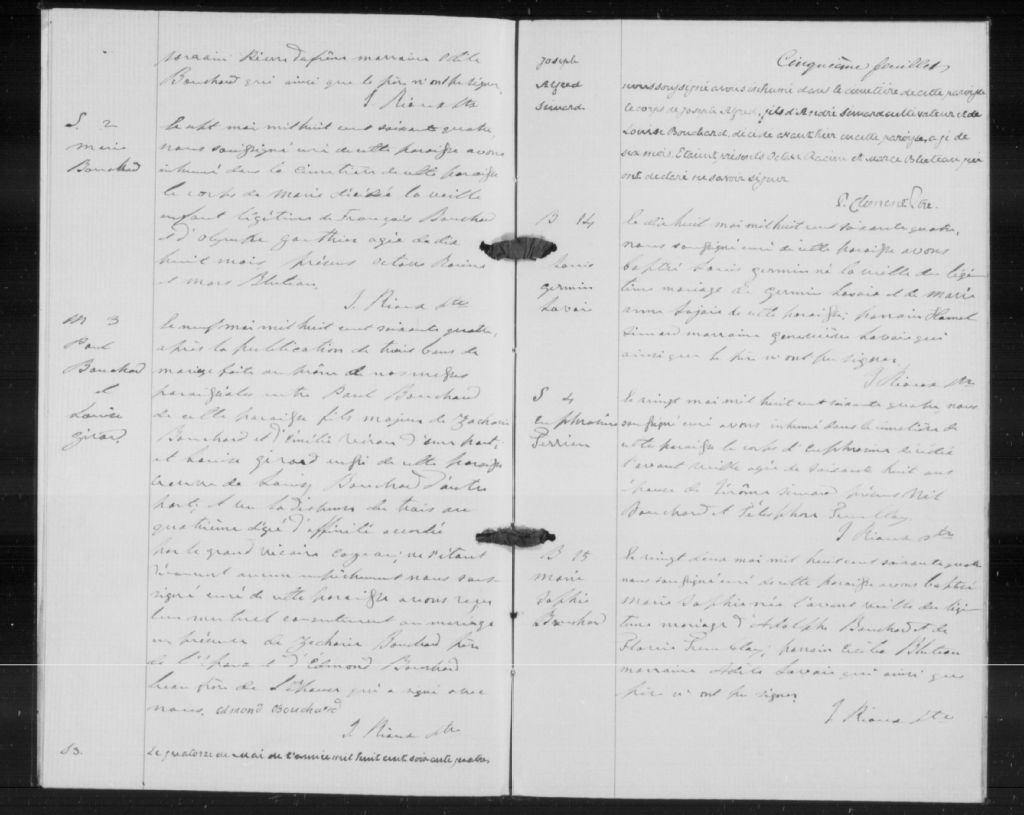 parrain Pierre marraine
Bouchard qui ainsi que le père n'ont pu signer
J. Riana Ptre
S. 2
marie
Bouchard
le sept mai mil huit cent soixante quatre,
nous soussigné curé de cette paroisse avons
inhumé dans le cimetière de cette paroisse
le corps de marie décédée la veille
enfant légitime de François Bouchard
et d'Olympe Gauthier agée de dix
huit mois présens Octave Racine
et mars Bluteau
J. Riana Ptre
M 3
Paul
Bouchard
et
Louise
Girard
le neuf mai mil huit cent soixante quatre,
après la publication de trois bans de
mariage faite au prône de nos messes
paroissiales entre Paul Bouchard
de cette paroisse fils majeur de Zacharie
Bouchard et d'Emilie d'une part,
et Louise Girard aussi de cette paroisse
veuve de Louis Bouchard d'autre
part, et vu la dispense du trois au
quatrième degré d'affinité accordée
par le grand vicaire Cazeau; ne s'étant
découvert aucun empêchement nous sous-
signé curé de cette paroisse avons reçu
leur mutuel consentement au mariage
en présence de Zacharie Bouchard père
de l'époux et d'Edmond Bouchard
beau frère de l'épouse qui a signé avec
nous. Edmond Bouchard
J. Riana Ptre
S3.
Le quatorze de Mai de l'année mil huit cent soixante quatre
Cinquième feuillet,
Joseph
Alfred
Simard
nous soussigné avons inhumé dans le cimetière de cette paroisse
le corps de Joseph Alfred, fils d'André Simard cultivateur et de
Louise Bouchard, décédé avant hier en cette paroisse, agé de
six mois. Etaient présents Octave Racine et Marce Bluteau qui
ont déclaré ne savoir signer
P. Clément Ptre.
B 14
Louis
Germin
Lavoie
le dix huit mai mil huit cent soixante quatre,
nous soussigné curé de cette paroisse avons
baptisé Louis Germin né la veille du légi-
time mariage de Germin Lavoie et de Marie
anne de cette paroisse; parrain Hamel
Simard marraine Lavoie qui
ainsi que le père n'ont pu signer
J. Riana Ptre
S 4
Euphrosine
Perrien
le vingt mai mil huit cent soixante quatre nous
soussigné curé avons inhumé dans le cimetière de
cette paroisse le corps d'Euphrosine décédée
l'avant veille agée de soixante huit ans
épouse de Jérôme Simard présens Nil
Bouchard et Télesphore Tremblay
J. Riana Ptre
B 15
Marie
Sophie
Bouchard
le vingt deux mai mil huit cent soixante quatre
nous soussigné curé de cette paroisse avons baptisé
marie Sophie née l'avant veille du légi-
time mariage d'Adolphe Bouchard et de
Flavie Tremblay; parrain Bluteau
marraine Lavoie qui ainsi que
père n'ont pu signer
J. Riana Ptre